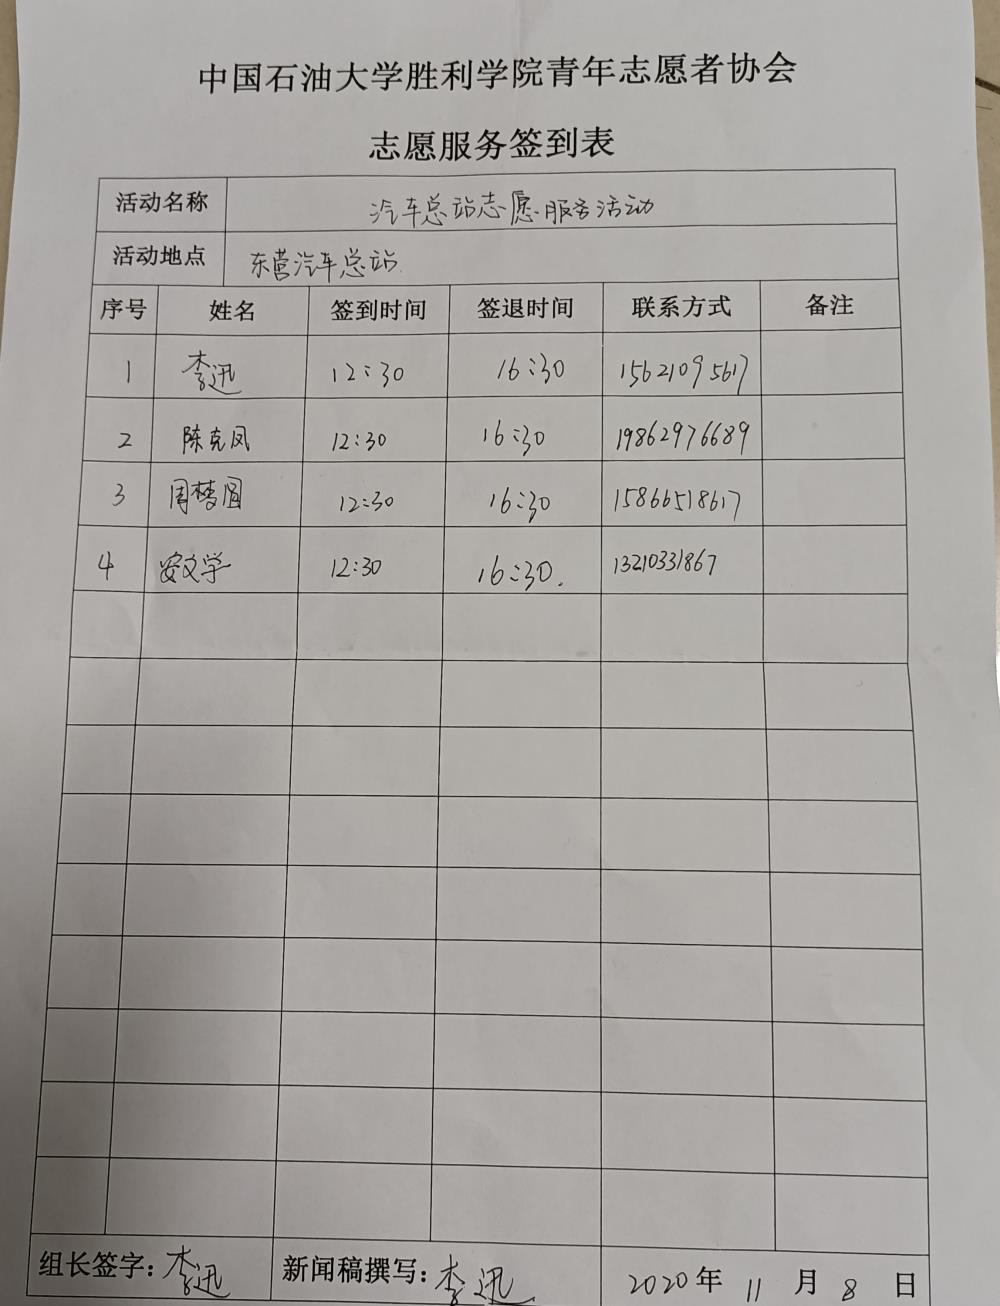 中国石油大学胜利学院青年志愿者协会
志愿服务签到表
活动名称 汽车总站志愿服务活动
活动地点 东营汽车总站
序号 姓名 签到时间 签退时间 联系方式 备注
1 李迅 12:30 16:30 15621095617
2 陈克凤 12:30 16:30 19862976689
3 周梦圆 12:30 16:30 15866518617
4 安文学 12:30 16:30. 13210331867
组长签字:李迅 新闻稿撰写:李迅 2020年 11 月 8 日